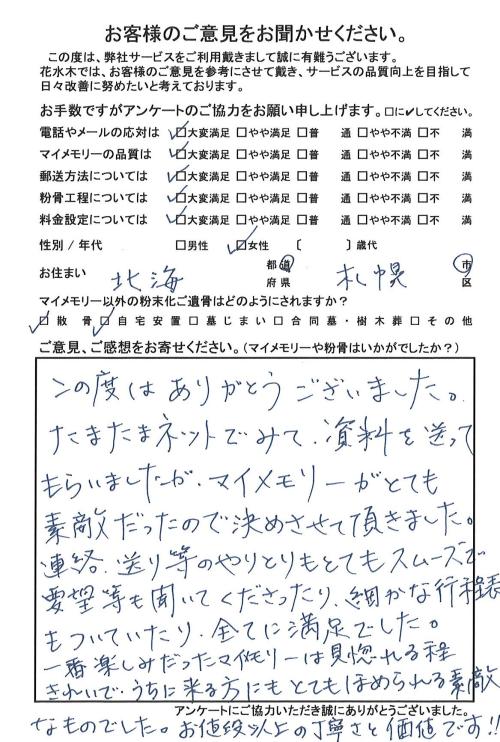 お客様のご意見をお聞かせください。
この度は、弊社サービスをご利用戴きまして誠に有難うございます。
花水木では、お客様のご意見を参考にさせて戴き、サービスの品質向上を目指して
日々改善に努めたいと考えております。
お手数ですがアンケートのご協力をお願い申し上げます。□に✔してください。
電話やメールの応対は ☑大変満足 □やや満足 □普 通 □やや不満 □不 満
マイメモリーの品質は ☑大変満足 □やや満足 □普 通 □やや不満 □不 満
郵送方法については ☑大変満足 □やや満足 □普 通 □やや不満 □不 満
粉骨工程については ☑大変満足 □やや満足 □普 通 □やや不満 □不 満
料金設定については ☑大変満足 □やや満足 □普 通 □やや不満 □不 満
性別/年代 □男性 ☑女性 〔 〕歳代
お住まい 北海 都道府県 札幌 市区
マイメモリー以外の粉末化ご遺骨はどのようにされますか?
☑散骨 ☑自宅安置 □墓じまい □合同墓・樹木葬 □その他
ご意見、ご感想をお寄せください。(マイメモリーや粉骨はいかがでしたか?)
この度はありがとうございました。
たまたまネットでみて、資料を送って
もらいましたが、マイメモリーがとても
素敵だったので決めさせて頂きました。
連絡、送り等のやりとりもとてもスムーズで
要望等も聞いてくださったり、細かな行程表
もついていたり、全てに満足でした。
一番楽しみだったマイメモリーは見惚れる程
きれいで、うちに来る方にもとてもほめられる素敵
アンケートにご協力いただき誠にありがとうございました。
なものでした。お値段以上の丁寧さと価値です!!